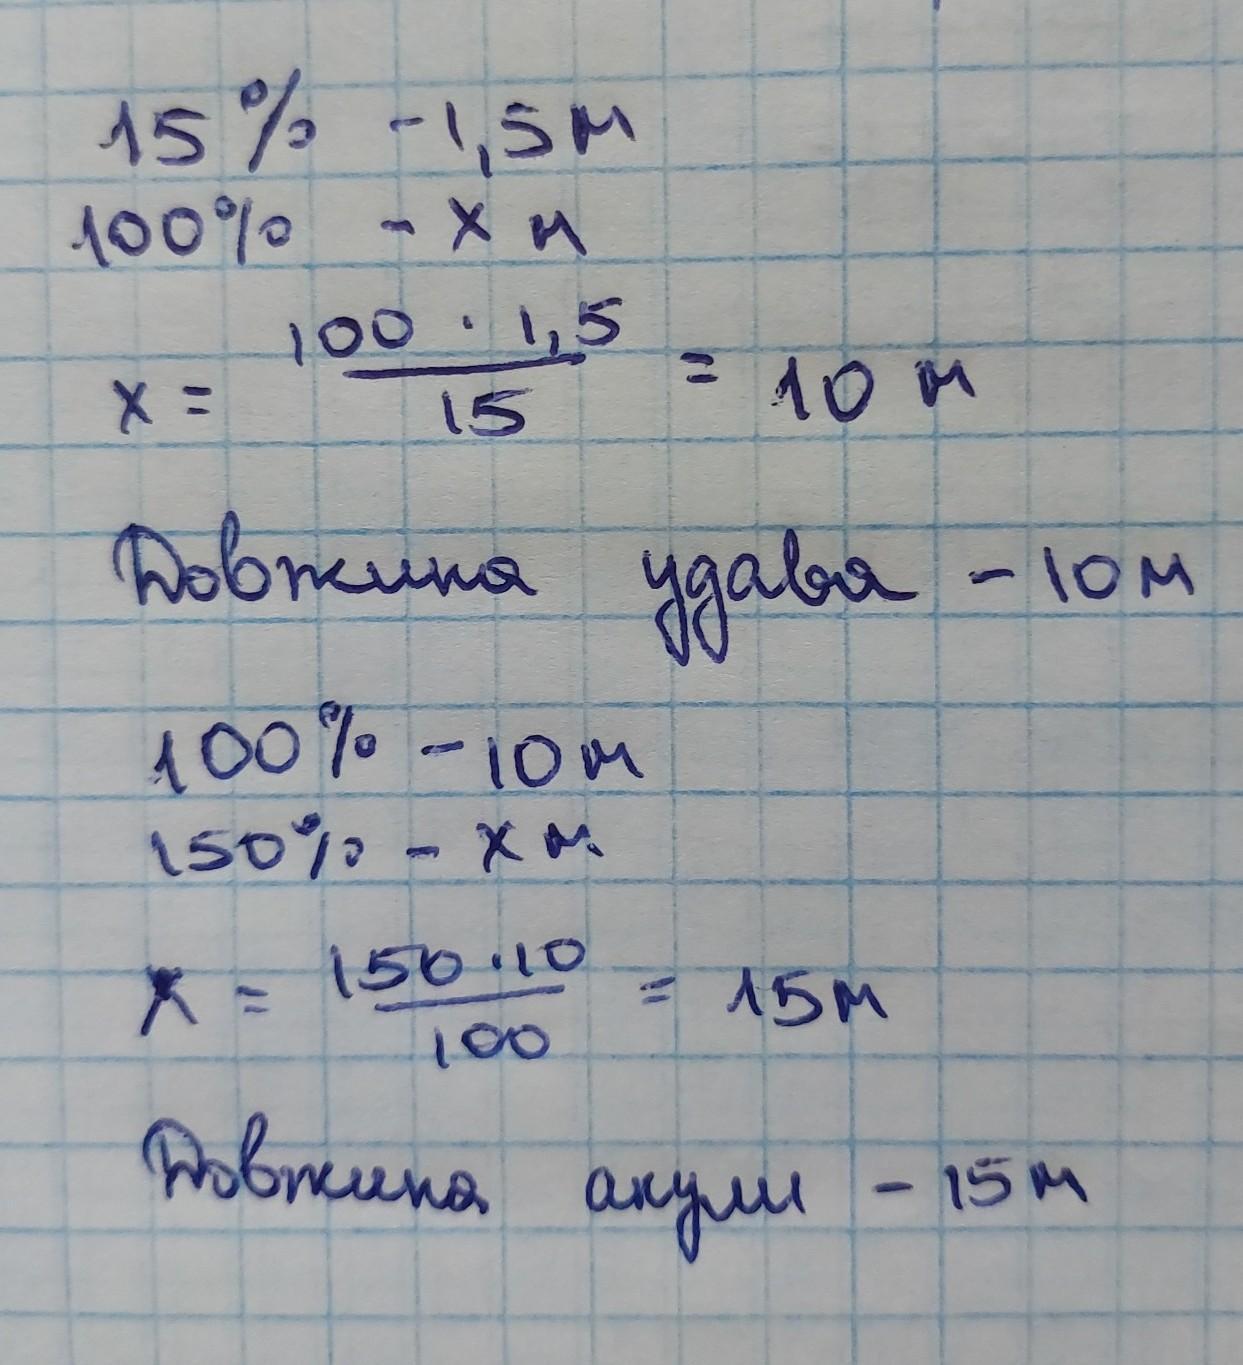 15% - 1,5 м
100% - x м
x = \frac{100 \cdot 1,5}{15} = 10 м
Довжина удава - 10 м
100% - 10 м
150% - x м
x = \frac{150 \cdot 10}{100} = 15 м
Довжина акули - 15 м